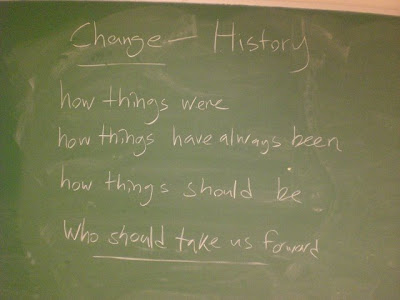 Change — History
how things were
how things have always been
how things should be
Who should take us forward